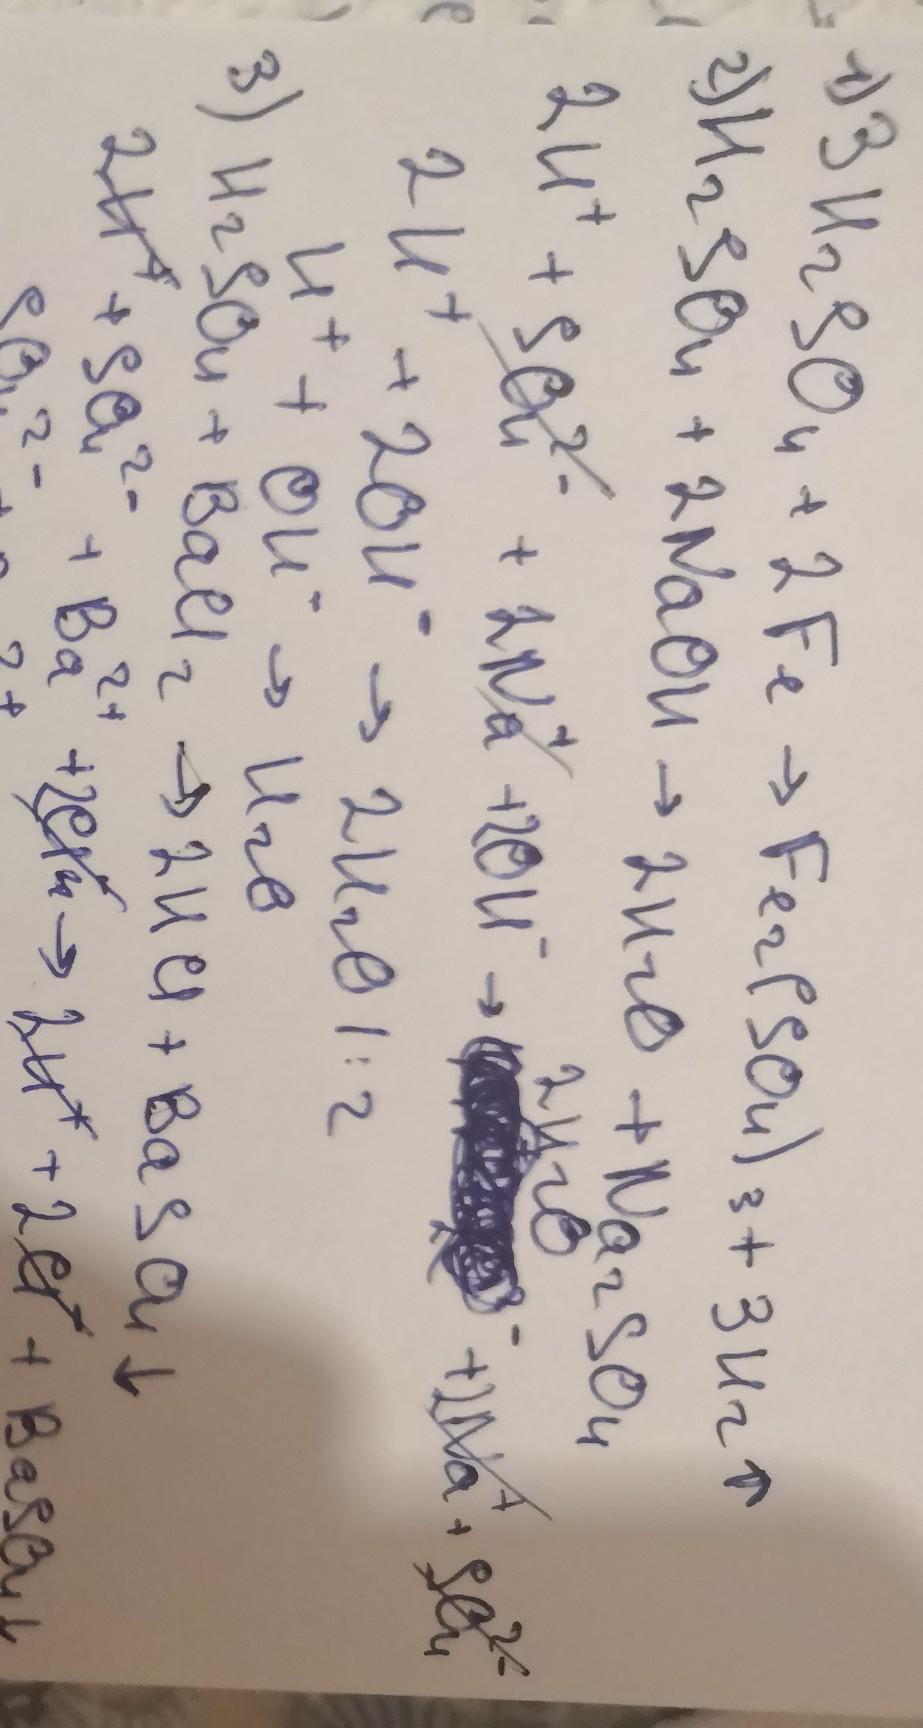 1) 3H₂SO₄ + 2Fe → Fe₂(SO₄)₃ + 3H₂↑
2) H₂SO₄ + 2NaOH → 2H₂O + Na₂SO₄
2H⁺ + SO₄²⁻ + 2Na⁺ + 2OH⁻ → 2H₂O + 2Na⁺ + SO₄²⁻
2H⁺ + 2OH⁻ → 2H₂O | : 2
H⁺ + OH⁻ → H₂O
3) H₂SO₄ + BaCl₂ → 2HCl + BaSO₄↓
2H⁺ + SO₄²⁻ + Ba²⁺ + 2Cl⁻ → 2H⁺ + 2Cl⁻ + BaSO₄↓
SO₄²⁻ +